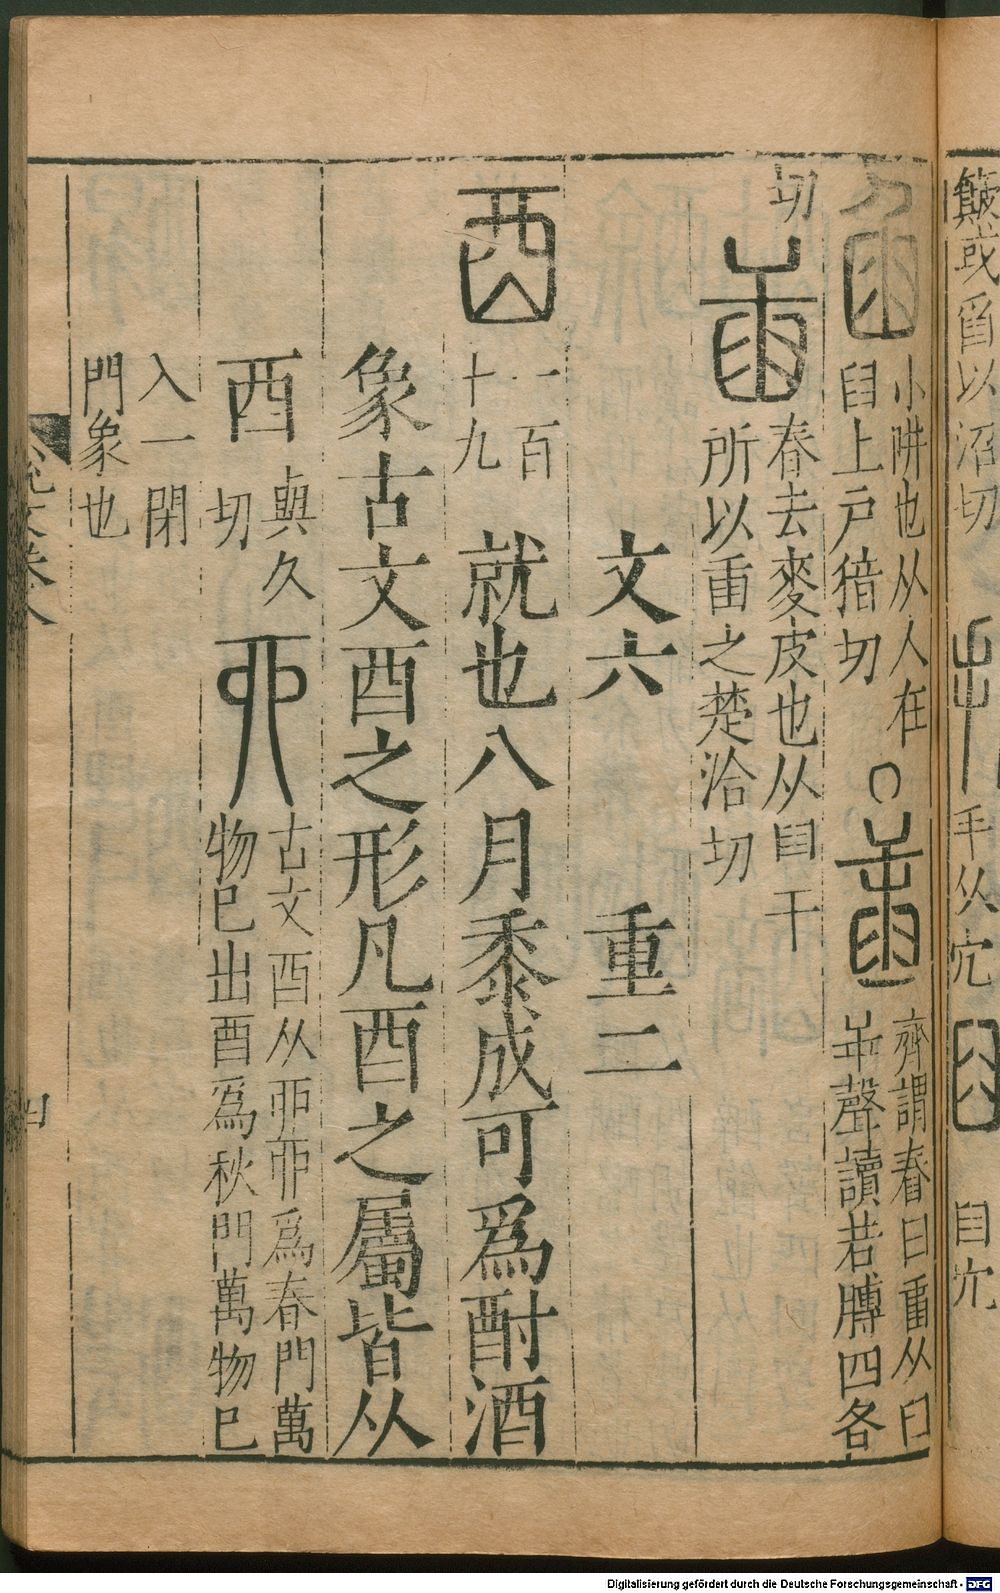 小阱也从人在
臼上戶猪切
齊謂舂曰𦥛从臼
屰聲讀若膊四各
切
舂去麥皮也从臼干
所以臿之楚洽切
文六 重二
酉
一百
十九
就也八月黍成可爲酎酒
象古文酉之形凡酉之屬皆从
酉
與久
切
丣
古文酉从丣丣爲春門萬
物已出酉爲秋門萬物已
入一閉
門象也
說文卷八
四
手从穴
Digitalisierung gefördert durch die Deutsche Forschungsgemeinschaft - DFG